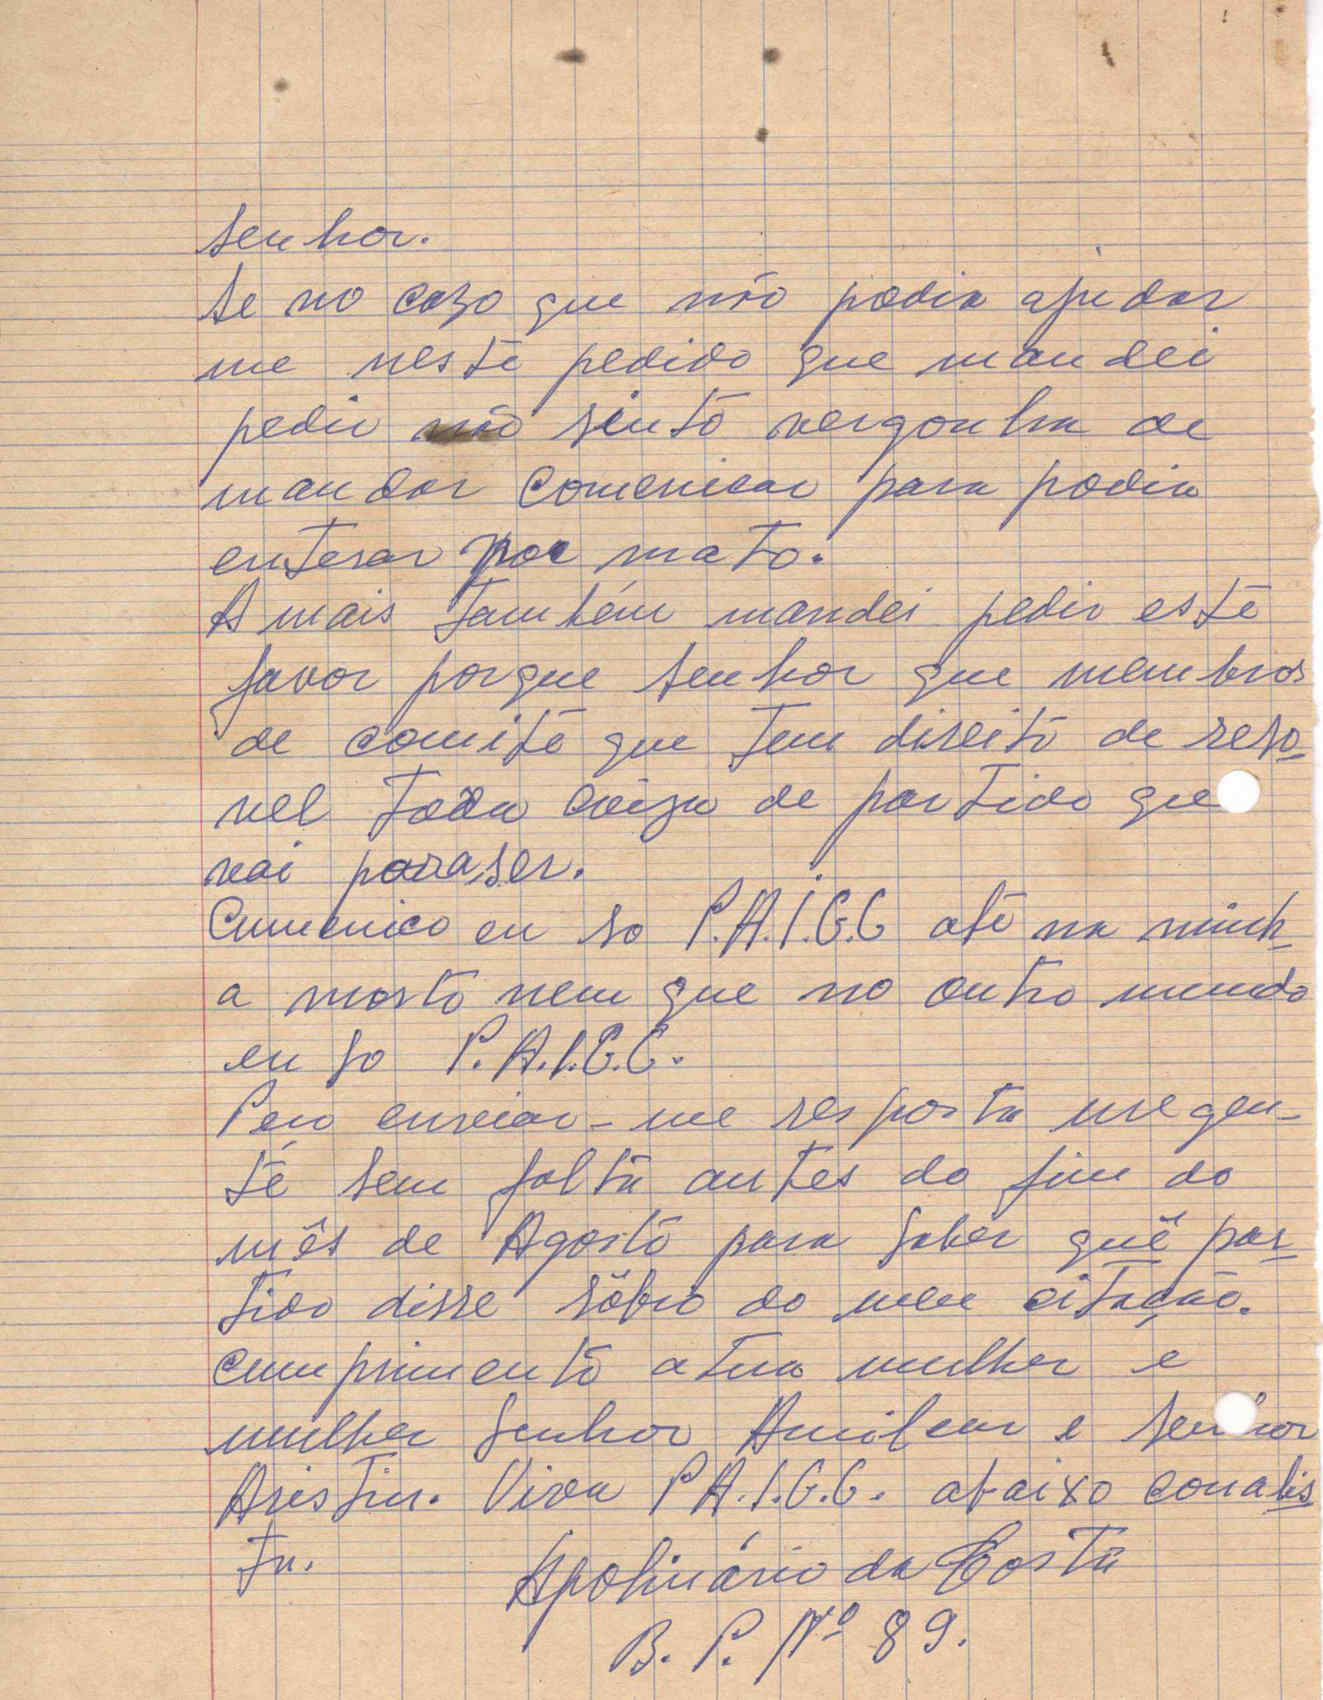 Senhor.
Se no cazo que não podia ajudar
me neste pedido que mandei
pedir não sinto vergonha de
mandar comenicar para podia
enterar por mato.
A mais também mandei pedir este
favor porque senhor que membros
de comite que tem direito de reso-
vel toda coiza de partido que
vai para ser.
Cumunico eu so P.A.I.G.C até na minh-
a morto nem que no outro mundo
eu so P.A.I.G.C.
Peço enveiar-me resposta uregen-
te sem falta antes do fim do
mês de Agosto para saber quê par-
tido disse sôbro do meu citação.
cumprimento a tua mulher e
mulher senhor Amilcar e senhor
Aristin. Viva P.A.I.G.C. abaixo conalis
ta.
Apolinário da Costa
B. P. Nº 89.